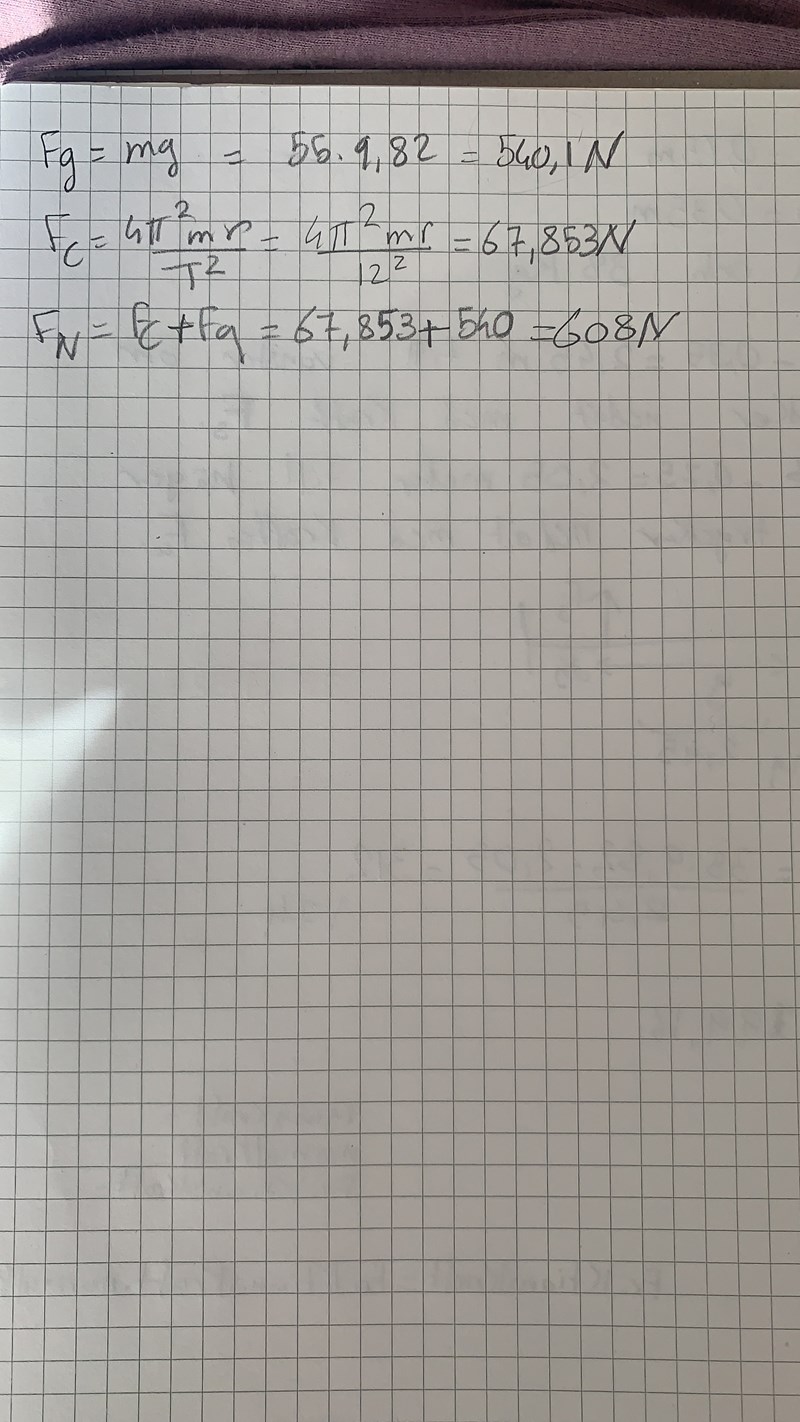 Fg = mg = 55.9,82 = 540,1 N
Fc = 4π²mr/T² = 4π²mr/12² = 67,853N
FN = Fc + Fg = 67,853 + 540 = 608N